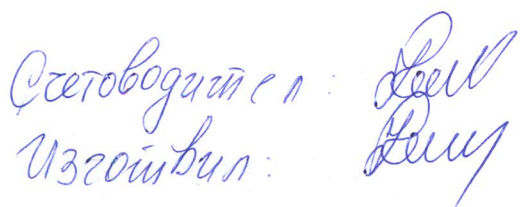 Счетоводител:
Изготвил: